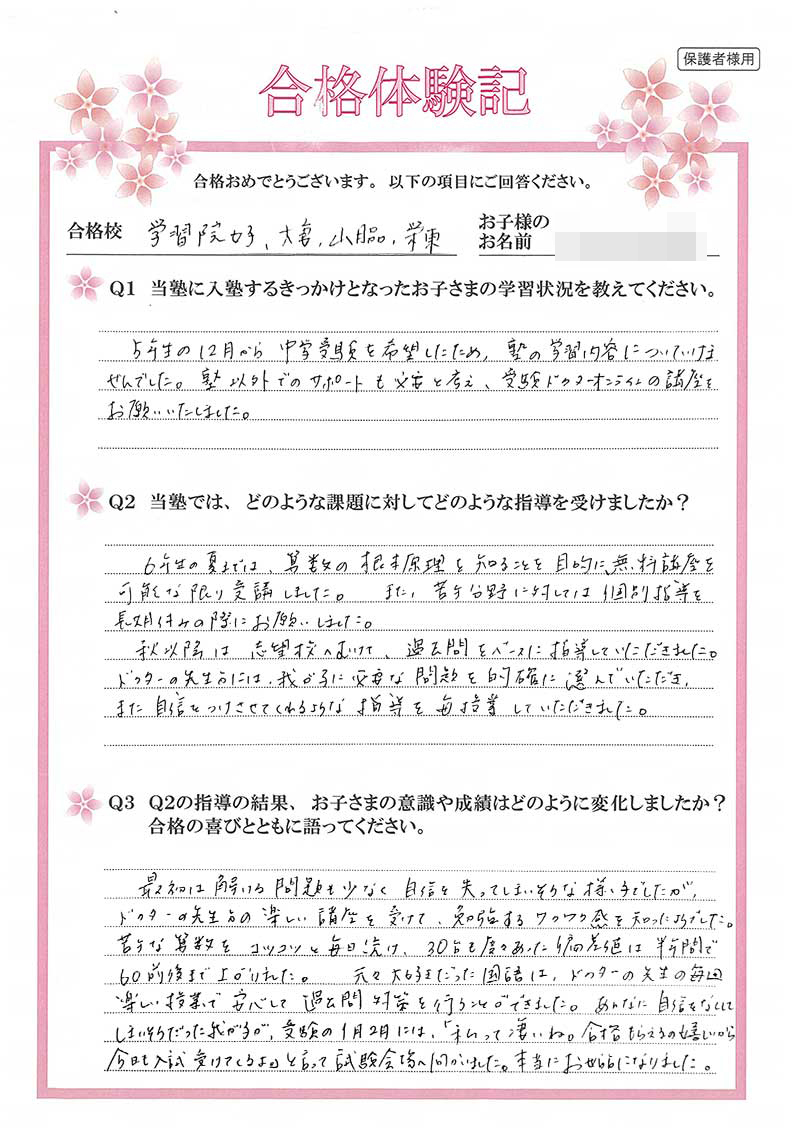 保護者様用
合格体験記
合格おめでとうございます。以下の項目にご回答ください。
合格校 学習院女子、大妻、山脇、栄東
お子様の
お名前
Q1 当塾に入塾するきっかけとなったお子さまの学習状況を教えてください。
5年生の12月から中学受験を希望したため、塾の学習内容についていけま
せんでした。塾以外でのサポートも必要と考え、受験ドクターオンラインの講座を
お願いいたしました。
Q2 当塾では、どのような課題に対してどのような指導を受けましたか？
6年生の夏までは、算数の根本原理を知ることを目的に、無料講座を
可能な限り受講しました。また、苦手分野に対しては個別指導を
長期休みの際にお願いしました。
秋以降は志望校へむけて、過去問をベースに指導していただきました。
ドクターの先生方には、我が子に必要な問題を的確に選んでいただき、
また自信をつけさせてくれるような指導を毎授業していただきました。
Q3 Q2の指導の結果、お子さまの意識や成績はどのように変化しましたか？
合格の喜びとともに語ってください。
最初は解ける問題も少なく自信を失ってしまいそうな様子でしたが、
ドクターの先生方の楽しい講座を受けて、勉強するワクワク感を知ったようでした。
苦手な算数をコツコツと毎日続け、30台も度々あった偏差値は半年間で
60前後まで上がりました。元々大好きだった国語は、ドクターの先生の毎回
楽しい授業で安心して過去問対策を行うことができました。あんなに自信をなくして
しまいそうだった我が子が、受験の1月2月には、「私って凄いね。合格もらえるの嬉しいから
今日も入試受けてくるよ」と言って試験会場へ向かいました。本当にお世話になりました。